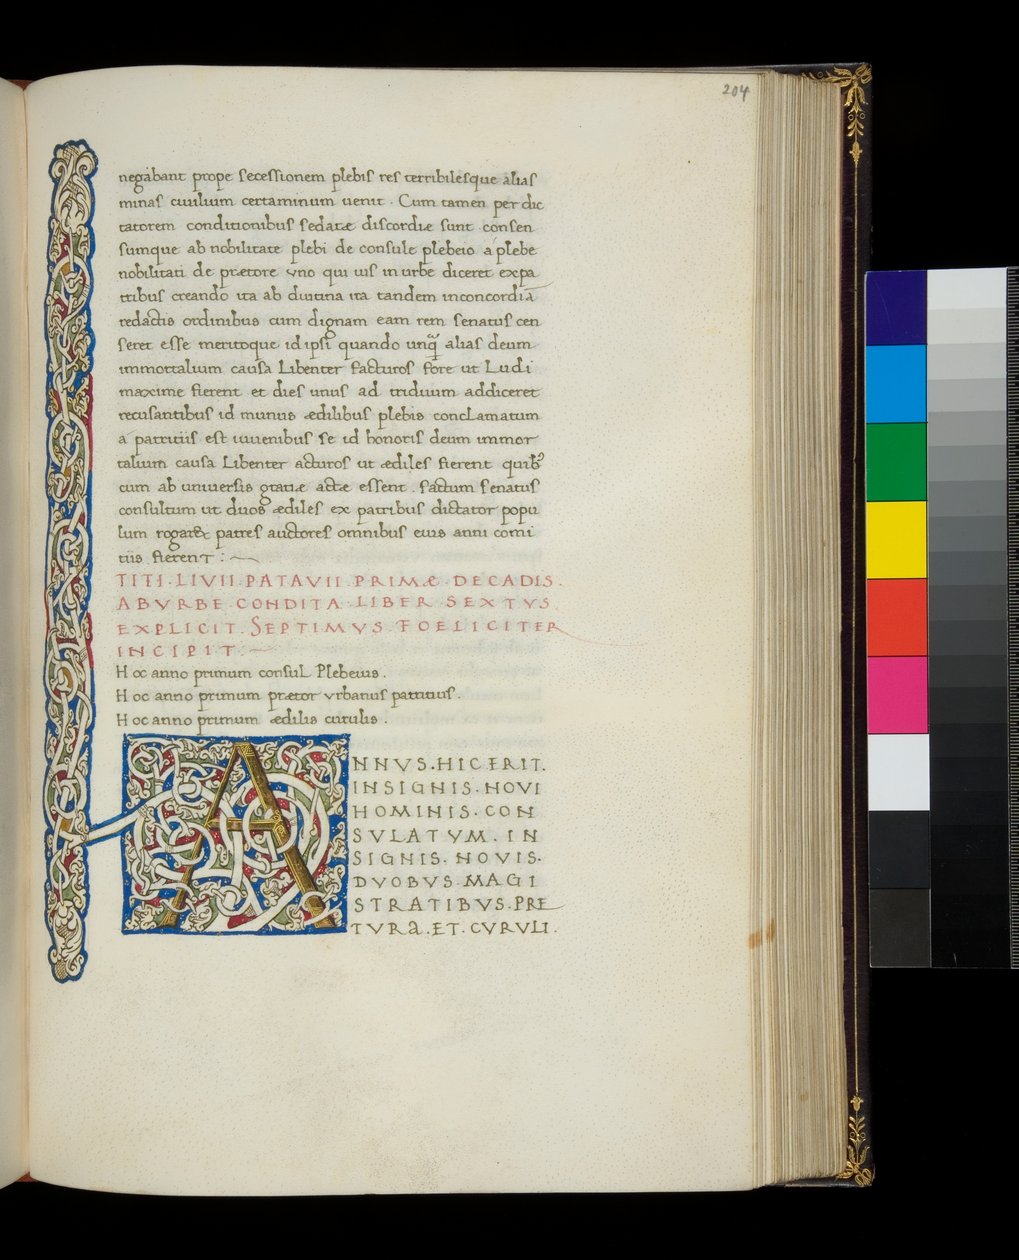 204
negabant prope secessionem plebis res terribilesque alias
minas ciuilium certaminum uenit · Cum tamen per dic
tatorem conditionibus sedatæ discordie sunt consen
sumque ab nobilitate plebi de consule plebeio a plebe
nobilitati de prætore vno qui ius in urbe diceret expa
tribus creando ita ab diutina ira tandem inconcordia
redactis ordinibus cum dignam eam rem senatus cen
seret esse meritoque id ipsi quando unq̃ alias deum
immortalium causa Libenter facturos fore ut Ludi
maxime fierent et dies unus ad triduum addiceret
recusantibus id munus ædilibus plebis conclamatum
a patritiis est iuuenibus se id honoris deum immor
talium causa Libenter acturos ut ædiles fierent quibꝰ
cum ab uniuersis gratiæ actæ essent . factum senatus
consultum ut duos ædiles ex patribus dictator popu
lum rogar& patres auctores omnibus eius anni comi
tiis fierenT :
TITI · LIVII · PATAVII · PRIMÆ · DECADIS .
ABVRBE · CONDITA · LIBER · SEXTVS
EXPLICIT . SEPTIMVS · FOELICITER
INCIPIT :
Hoc anno primum consuL Plebeius .
Hoc anno primum prætor vrbanus patritius .
Hoc anno primum ædilis curulis .
ANNVS . HIC ERIT .
INSIGNIS · NOVI
HOMINIS · CON
SVLATVM · IN
SIGNIS · NOVIS ·
DVOBVS · MAGI
STRATIBVS · PRE
TVRa . ET . CVRVLI .